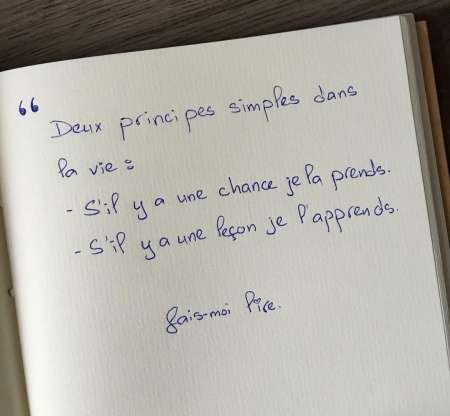 “
Deux principes simples dans
la vie :
- S'il y a une chance je la prends.
- S'il y a une leçon je l'apprends.
fais-moi lire.